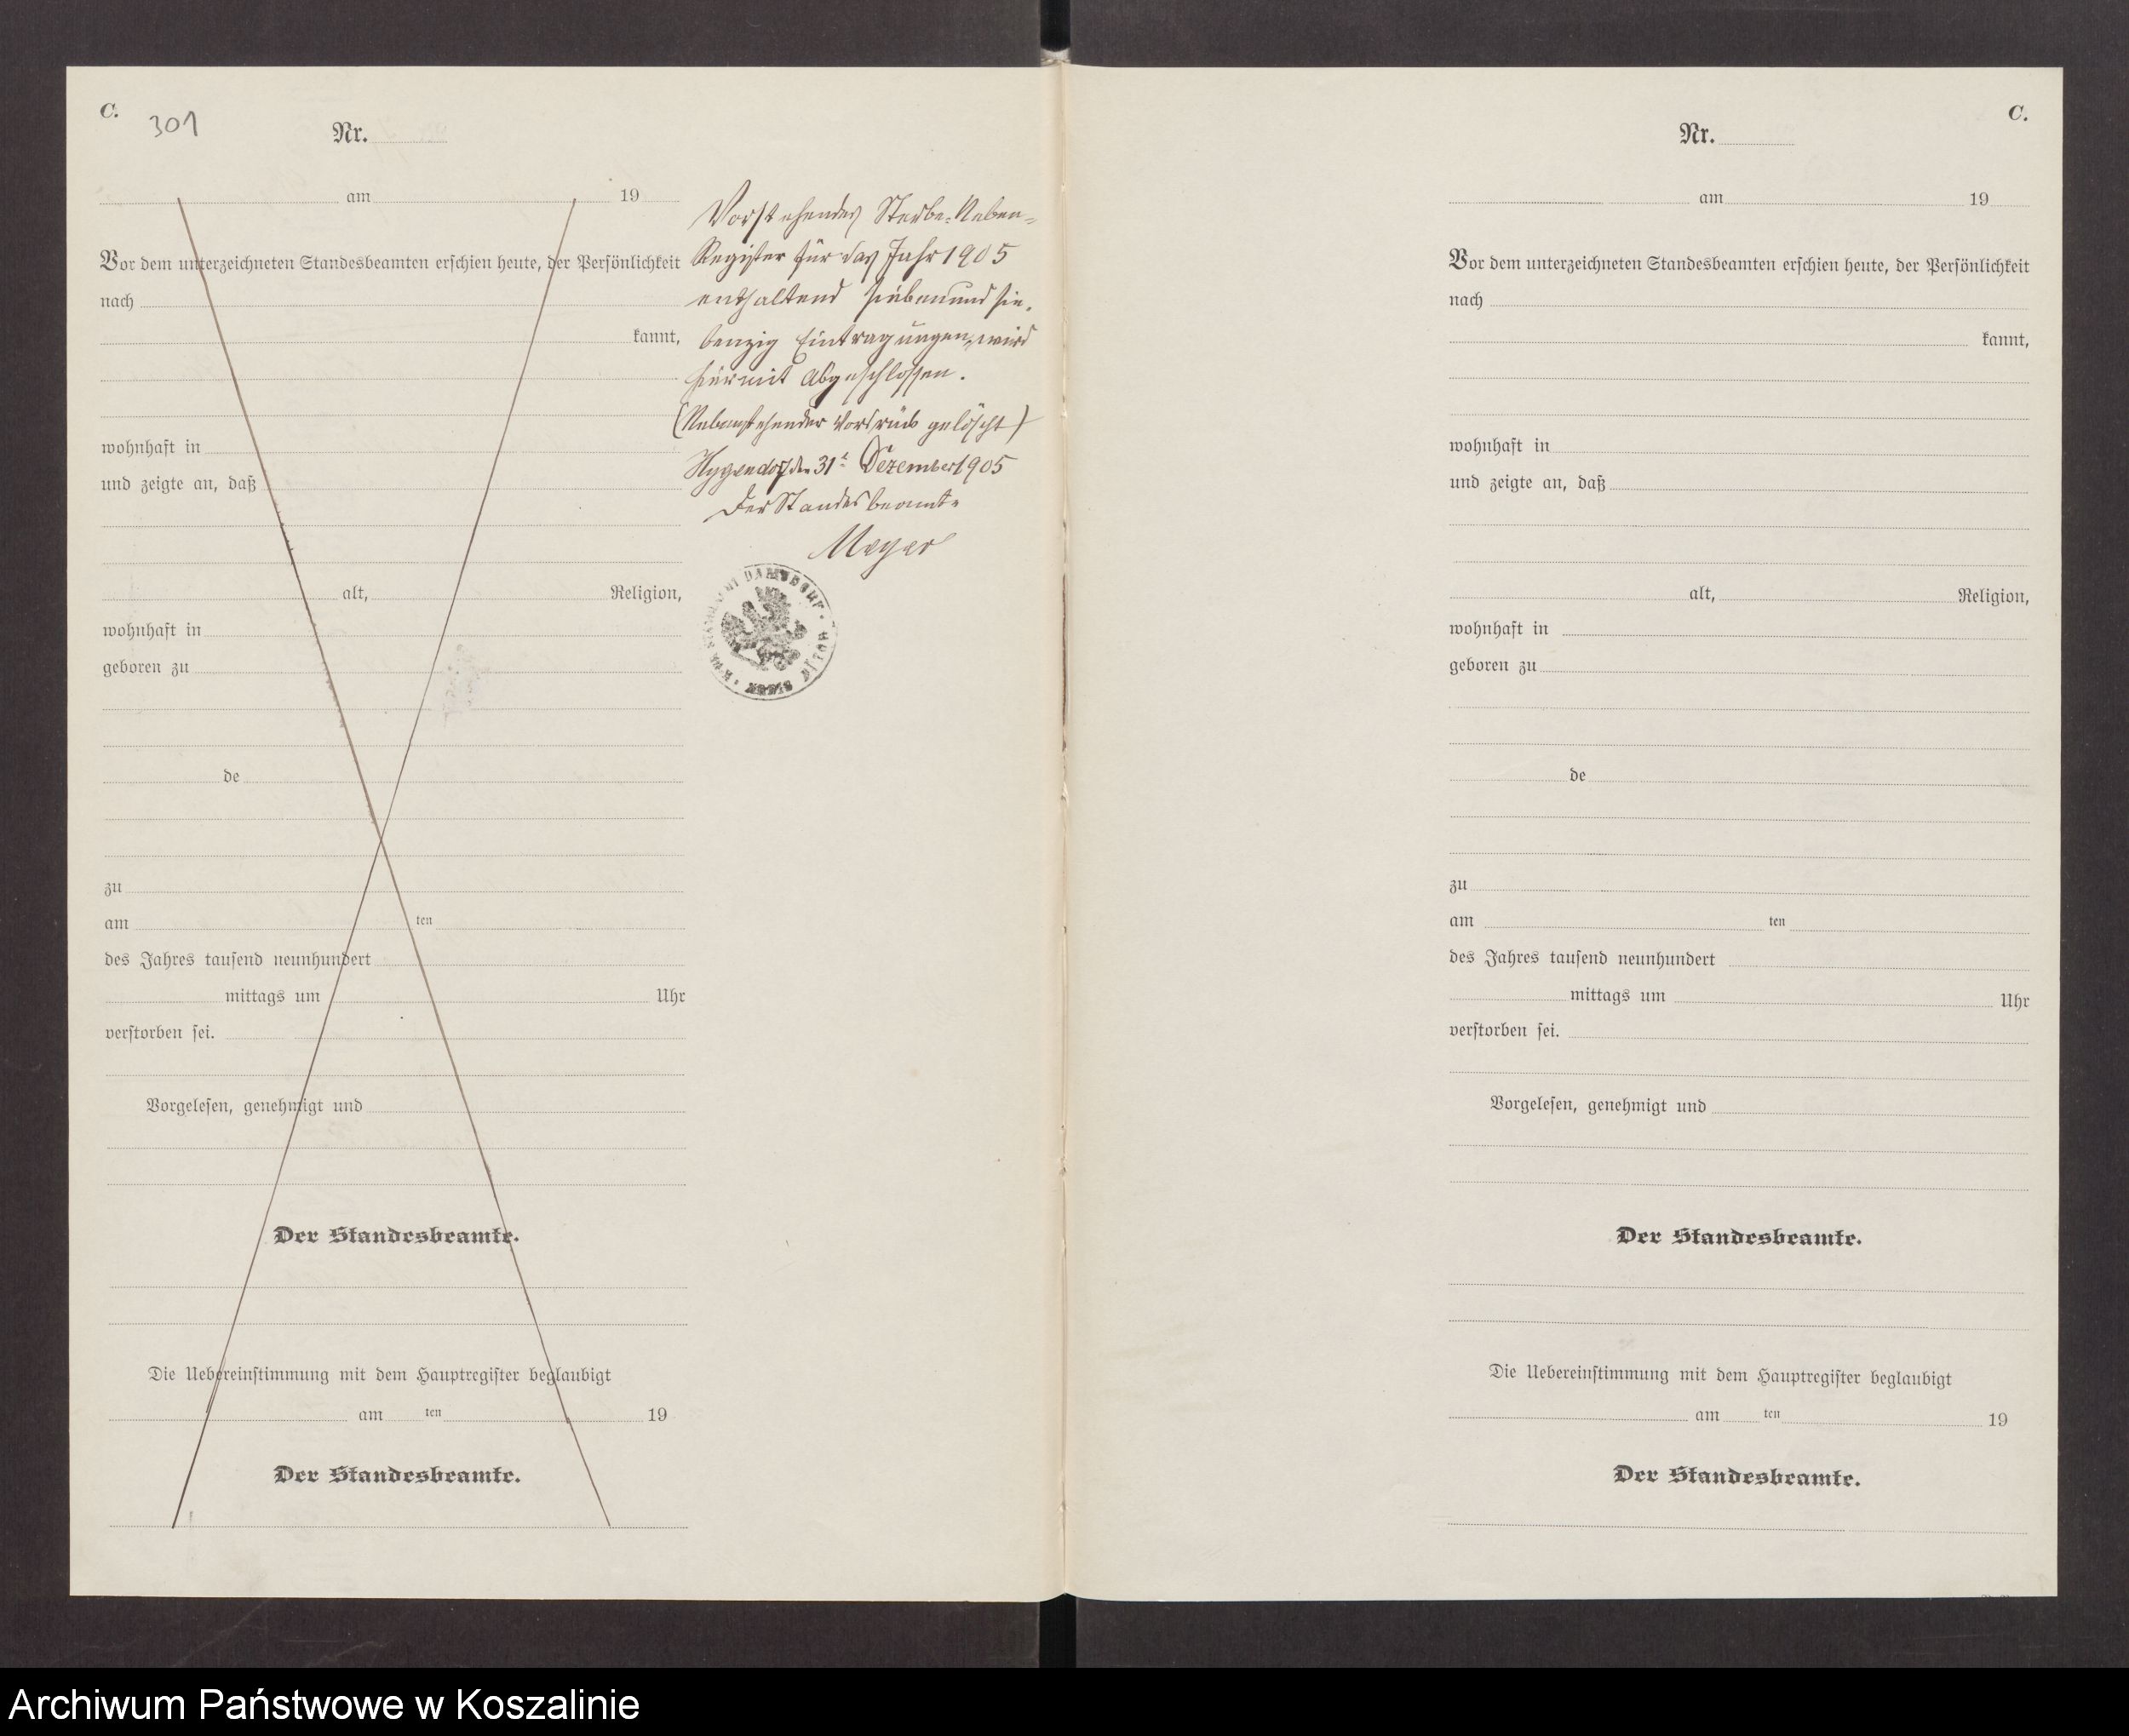 C.
301
Nr.
am 19
Vor dem unterzeichneten Standesbeamten erschien heute, der Persönlichkeit
nach
kannt,
wohnhaft in
und zeigte an, daß
alt, Religion,
wohnhaft in
geboren zu
de
zu
am ten
des Jahres tausend neunhundert
mittags um Uhr
verstorben sei.
Vorgelesen, genehmigt und
Der Standesbeamte.
Die Uebereinstimmung mit dem Hauptregister beglaubigt
am ten 19
Der Standesbeamte.
Vorstehendes Sterbe-Neben-
Register für das Jahr 1905
enthaltend siebenund sie-
benzig Eintragungen, wird
hiermit abgeschlossen.
(Nebenstehender Vordruck gelöscht)
den 31t Dezember 1905
Der Standesbeamte
Meyer
C.
Nr.
am 19
Vor dem unterzeichneten Standesbeamten erschien heute, der Persönlichkeit
nach
kannt,
wohnhaft in
und zeigte an, daß
alt, Religion,
wohnhaft in
geboren zu
de
zu
am ten
des Jahres tausend neunhundert
mittags um Uhr
verstorben sei.
Vorgelesen, genehmigt und
Der Standesbeamte.
Die Uebereinstimmung mit dem Hauptregister beglaubigt
am ten 19
Der Standesbeamte.
Archiwum Państwowe w Koszalinie